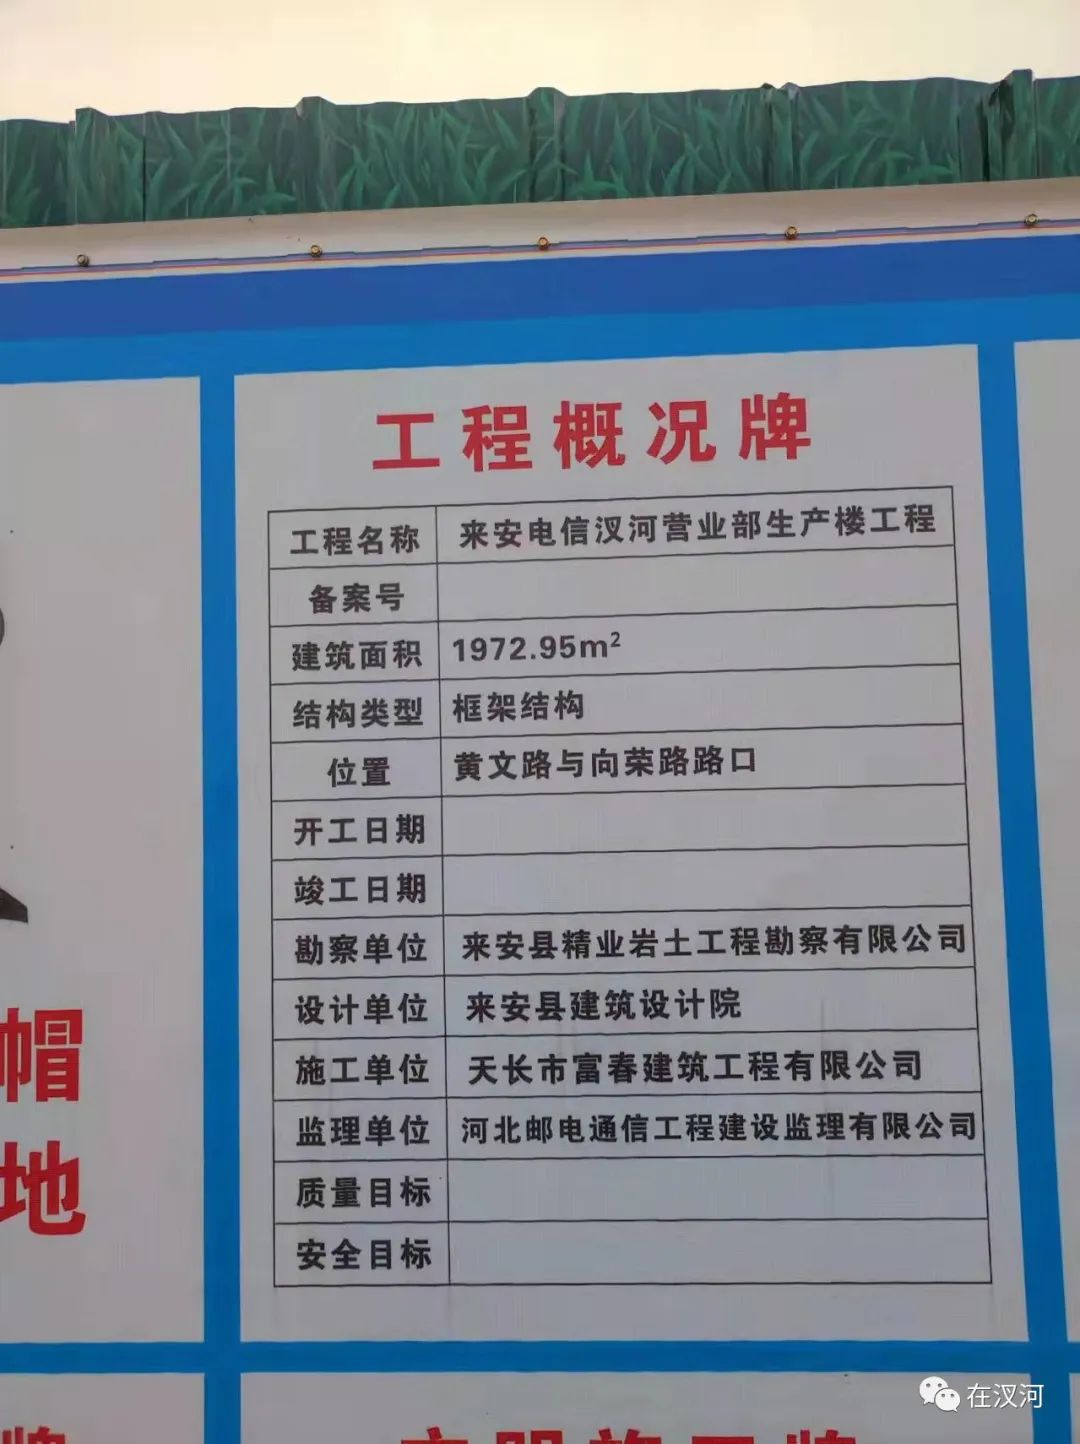 工程概况牌
工程名称 来安电信汊河营业部生产楼工程
备案号
建筑面积 1972.95m²
结构类型 框架结构
位置 黄文路与向荣路路口
开工日期
竣工日期
勘察单位 来安县精业岩土工程勘察有限公司
设计单位 来安县建筑设计院
施工单位 天长市富春建筑工程有限公司
监理单位 河北邮电通信工程建设监理有限公司
质量目标
安全目标
帽
地
在汊河